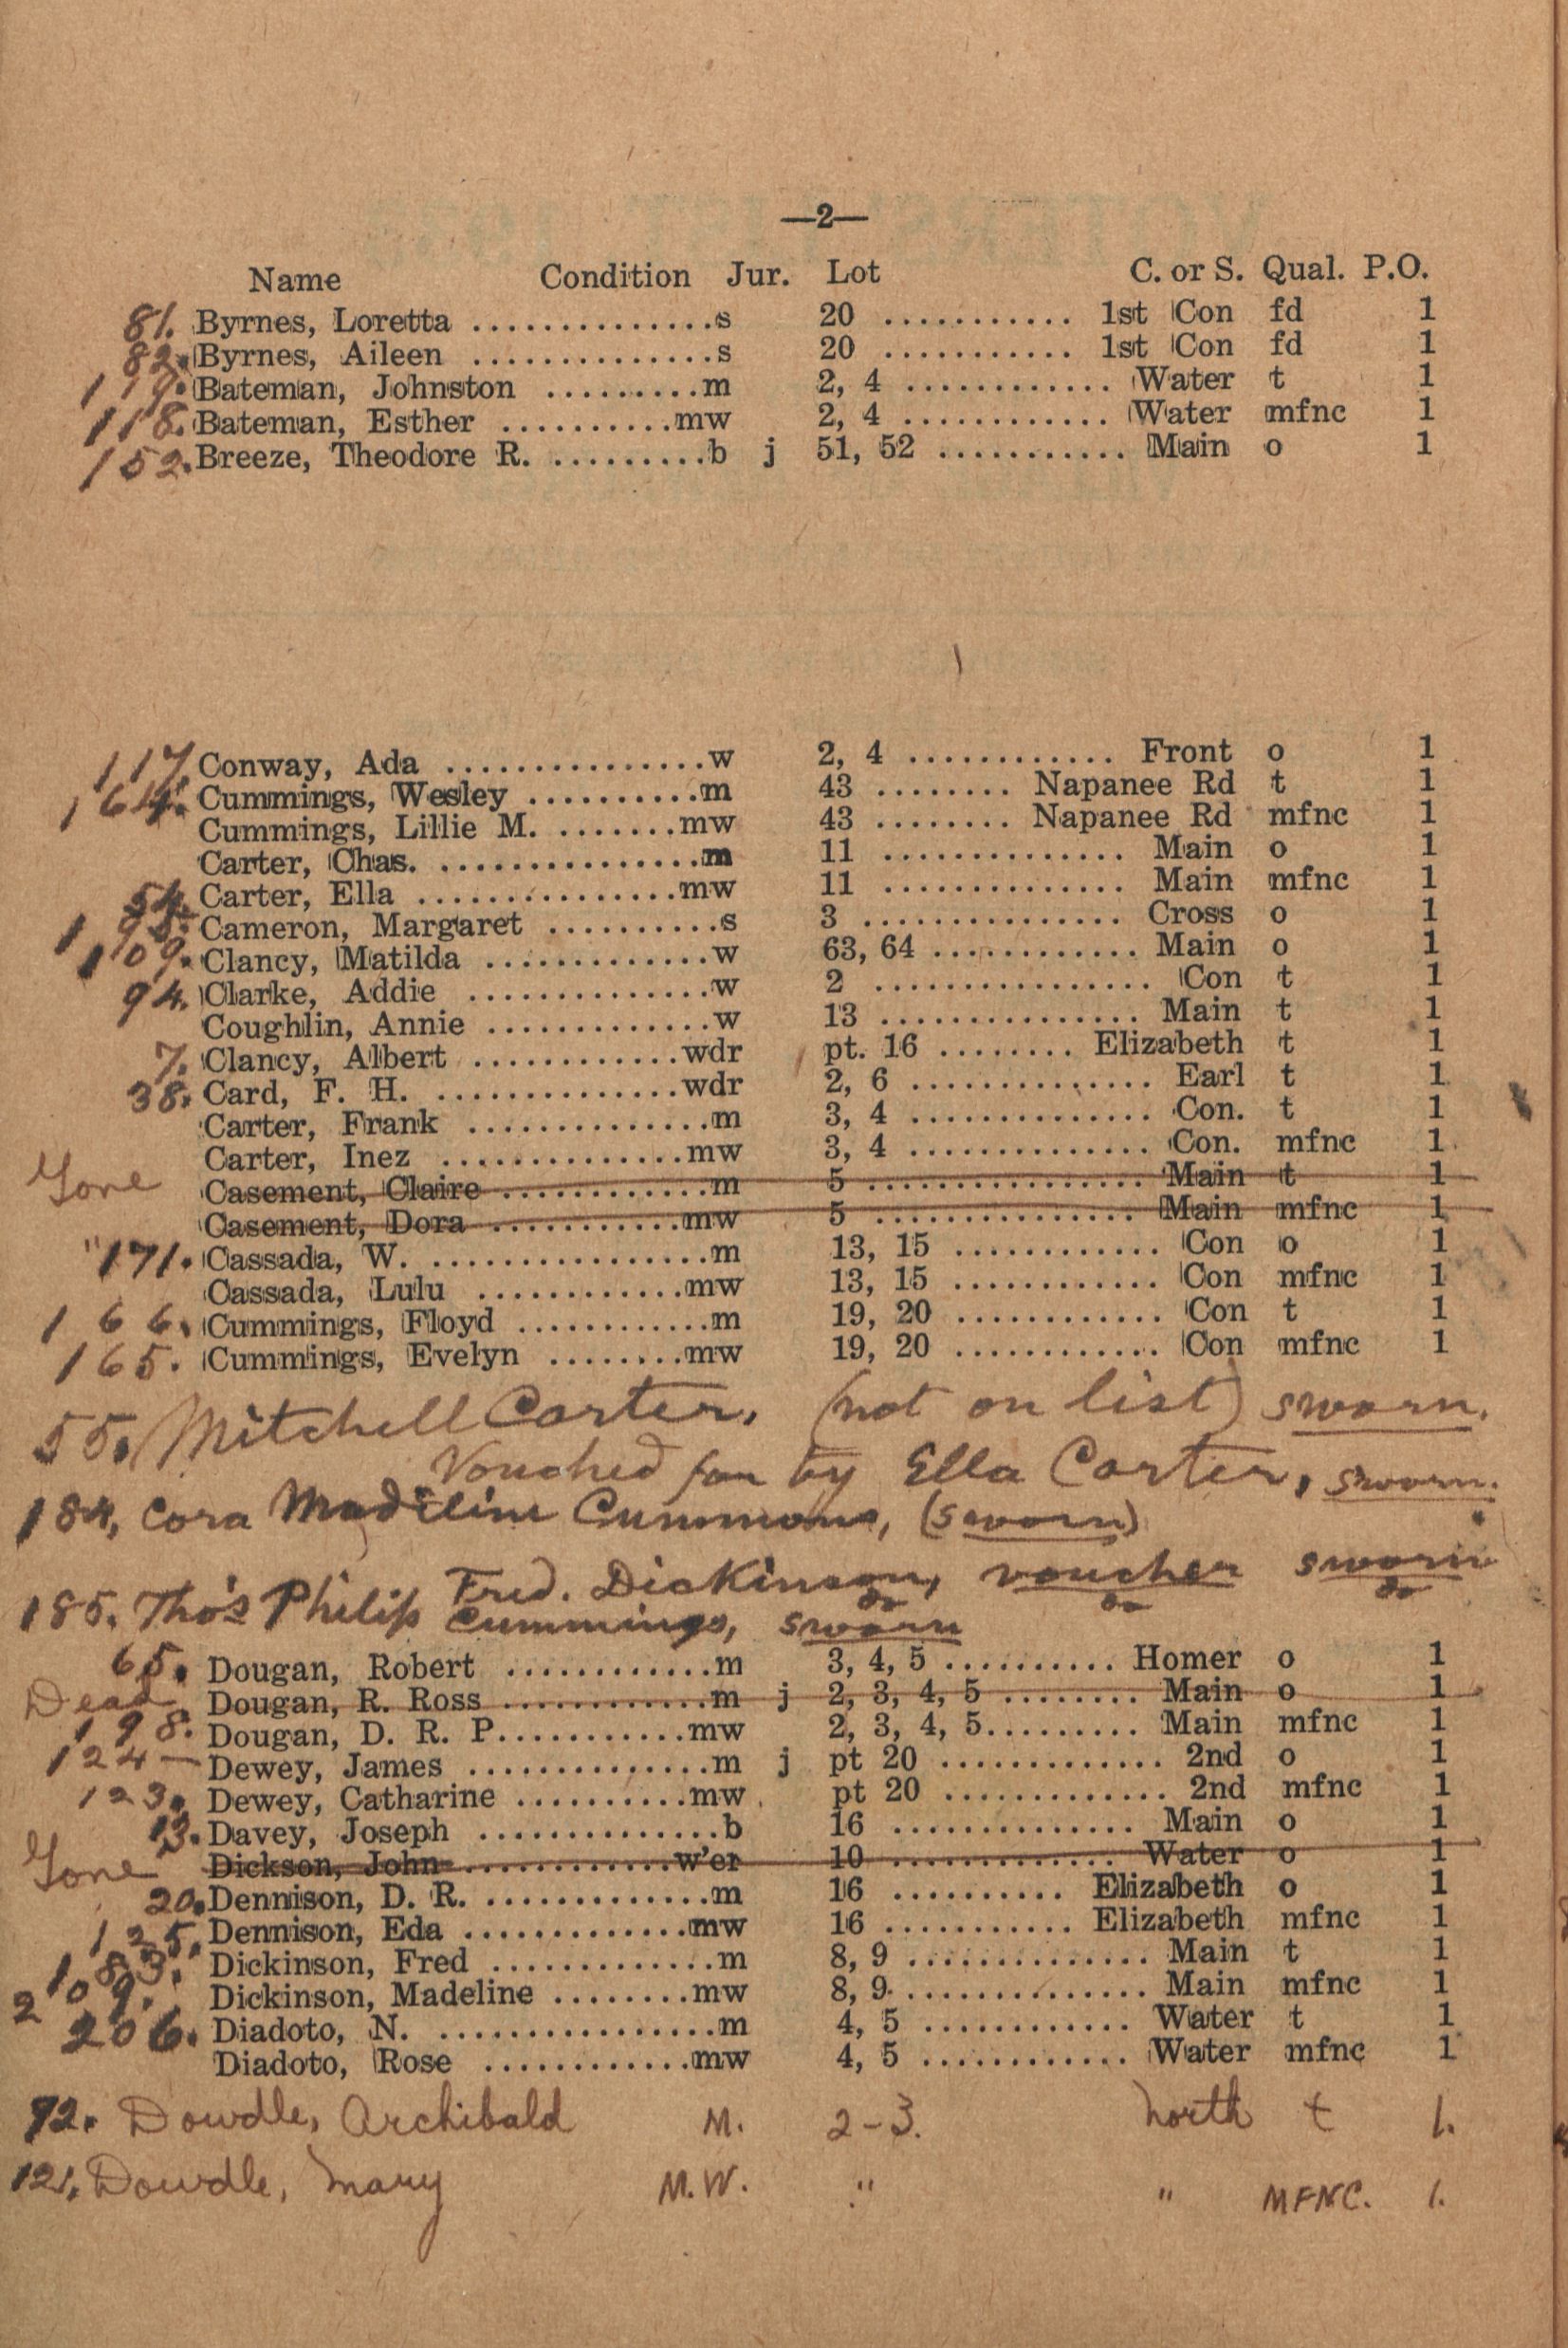 —2—
Name Condition Jur. Lot C. or S. Qual. P.O.
81. Byrnes, Loretta ..............s 20 ........... 1st Con fd 1
82. Byrnes, Aileen ..............s 20 ........... 1st Con fd 1
119. Bateman, Johnston .........m 2, 4 ............ Water t 1
118. Bateman, Esther ..........mw 2, 4 ............ Water mfnc 1
152. Breeze, Theodore R. .........b j 51, 52 ........... Main o 1
117. Conway, Ada ...............w 2, 4 ............ Front o 1
164. Cummings, Wesley ..........m 43 ........ Napanee Rd t 1
Cummings, Lillie M. .......mw 43 ........ Napanee Rd mfnc 1
Carter, Chas. ................m 11 .............. Main o 1
54. Carter, Ella ...............mw 11 .............. Main mfnc 1
Cameron, Margaret ..........s 3 ................ Cross o 1
109. Clancy, Matilda .............w 63, 64 ............ Main o 1
94. Clarke, Addie ..............w 2 ................ Con t 1
Coughlin, Annie .............w 13 ............... Main t 1
7. Clancy, Albert ............wdr pt. 16 ........ Elizabeth t 1
38. Card, F. H. ..............wdr 2, 6 .............. Earl t 1
Carter, Frank ..............m 3, 4 .............. Con. t 1
Carter, Inez ..............mw 3, 4 .............. Con. mfnc 1
Gone Casement, Claire ............m 5 ................ Main t 1
Casement, Dora ...........mw 5 ............... Main mfnc 1
"171. Cassada, W. ................m 13, 15 ............ Con o 1
Cassada, Lulu ............mw 13, 15 ............ Con mfnc 1
166. Cummings, Floyd ............m 19, 20 ............ Con t 1
165. Cummings, Evelyn ........mw 19, 20 ............ Con mfnc 1
55. Mitchell Carter. (not on list) sworn.
Vouched for by Ella Carter, sworn.
184. Cora Madeline Cummons, (sworn)
Fred. Dickinson, voucher sworn
do do do
185. Tho's Philip Cummings, sworn
65. Dougan, Robert ............m 3, 4, 5 .......... Homer o 1
Dead Dougan, R. Ross ............m j 2, 3, 4, 5 ........ Main o 1
198. Dougan, D. R. P...........mw 2, 3, 4, 5......... Main mfnc 1
124— Dewey, James ..............m j pt 20 ............. 2nd o 1
123. Dewey, Catharine ..........mw pt 20 ............. 2nd mfnc 1
13. Davey, Joseph ..............b 16 .............. Main o 1
Gone Dickson, John ............w'er 10 ............. Water o 1
20. Dennison, D. R. .............m 16 .......... Elizabeth o 1
125. Dennison, Eda .............mw 16 ........... Elizabeth mfnc 1
183. Dickinson, Fred .............m 8, 9 .............. Main t 1
209. Dickinson, Madeline ........mw 8, 9. .............. Main mfnc 1
206. Diadoto, N. ................m 4, 5 ............ Water t 1
Diadoto, Rose ............mw 4, 5 ............ Water mfnc 1
92. Dowdle, Archibald M. 2-3. North t 1.
121. Dowdle, Mary M.W. " " MFNC. 1.